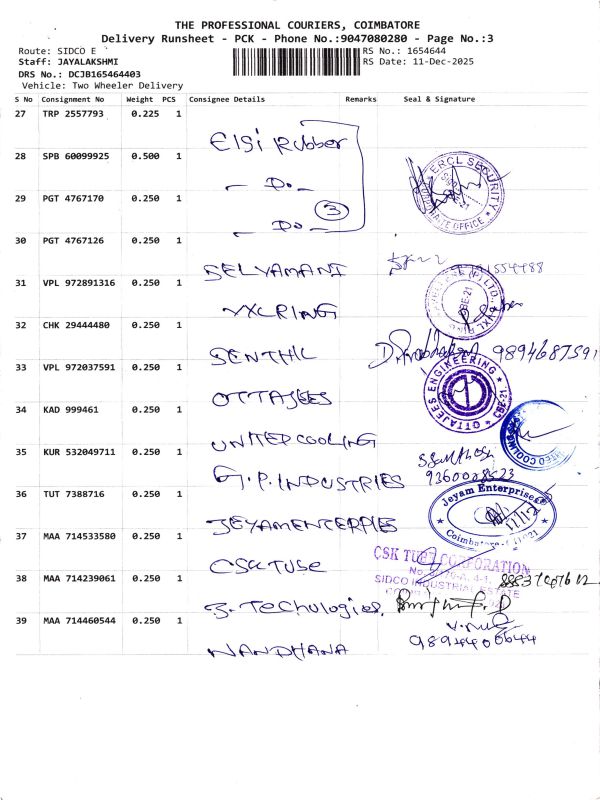 THE PROFESSIONAL COURIERS, COIMBATORE
Delivery Runsheet - PCK - Phone No.:9047080280 - Page No.:3
Route: SIDCO E RS No.: 1654644
Staff: JAYALAKSHMI RS Date: 11-Dec-2025
DRS No.: DCJB165464403
Vehicle: Two Wheeler Delivery
S No Consignment No Weight PCS Consignee Details Remarks Seal & Signature
27 TRP 2557793 0.225 1
Elgi Rubber
28 SPB 60099925 0.500 1
- Do -
29 PGT 4767170 0.250 1
3
- Do -
30 PGT 4767126 0.250 1
SELVAMANI
31 VPL 972891316 0.250 1
VXL RING
32 CHK 29444480 0.250 1
SENTHIL 9894687591
33 VPL 972037591 0.250 1
OTTAJEES
OTTAJEES ENGINEERING
CBE-21
34 KAD 999461 0.250 1
UNITED COOLING
35 KUR 532049711 0.250 1
G.P. INDUSTRIES
9360028523
36 TUT 7388716 0.250 1
Jeyam Enterprises
11/12
JEYAM ENTERPIES
37 MAA 714533580 0.250 1
CSK TUBE
CSK TUBE CORPORATION
SIDCO INDUSTRIAL ESTATE
38 MAA 714239061 0.250 1
3. Techulogies
39 MAA 714460544 0.250 1
9894400644
NANDHANA